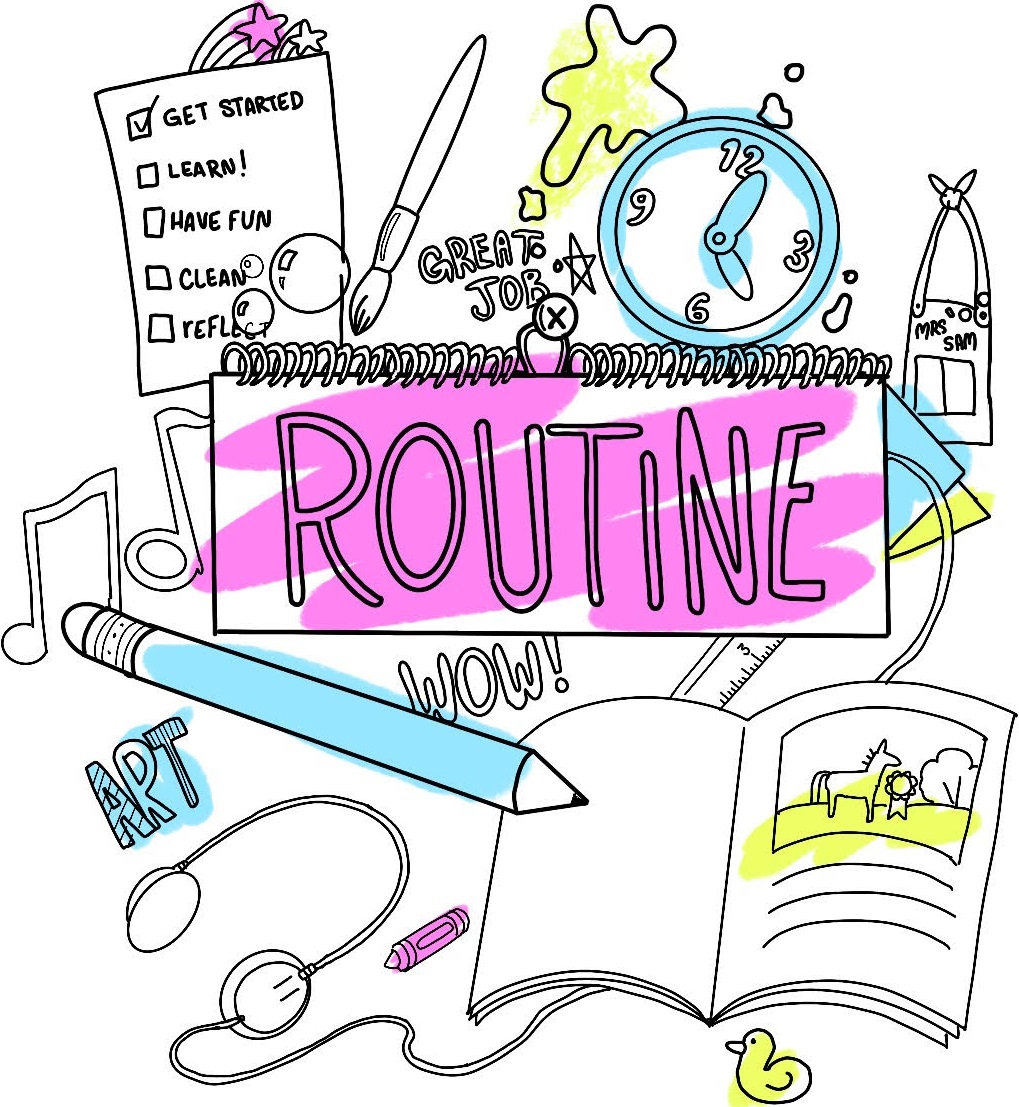 GET STARTED
LEARN!
HAVE FUN
CLEAN
REFLECT
GREAT
JOB
12
9
3
6
MRS
SAM
ROUTINE
WOW!
3
ART